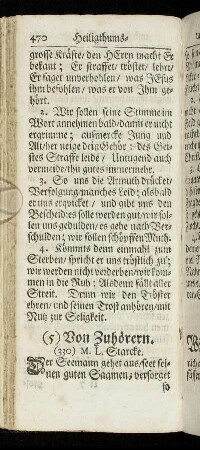 470 Heiligthums-
grosse Kräfte/ den HErrn macht Er
bekant; Er straffet/ tröstet/ lehrt/
Er saget unverhohlen/ was JEsus
ihm befohlen/ was er von Ihm ge-
hört.
2. Wir sollen seine Stimme im
Wort annehmen bald/ damit er nicht
ergrimme; aufmercke Jung und
Alt/ her neige dein Gehör: des Gei-
stes Straffe leide/ Untugend auch
vermeide/ thu gutes immermehr.
3. So uns die Armuth drücket/
Verfolgung/ manches Leid; alsbald
er uns erquicket/ und gibt uns den
Bescheid: es solle werden gut/ wir sol-
len uns gedulden/ es gehe nach Ver-
schulden; wir sollen schöpffen Muth.
4. Kömmts denn einmahl zum
Sterben/ spricht er uns tröstlich zu;
wir werden nicht verderben/ wir kom-
men in die Ruh: Alsdenn fällt aller
Streit. Denn wir den Tröster
ehren/ und seinen Trost anhören/ mit
Nutz zur Seligkeit.
(5) Von Zuhörern.
(330) M. L. Starcke.
Der Seemann gehet aus/ seet sei-
nen guten Saamen/ versorget
so